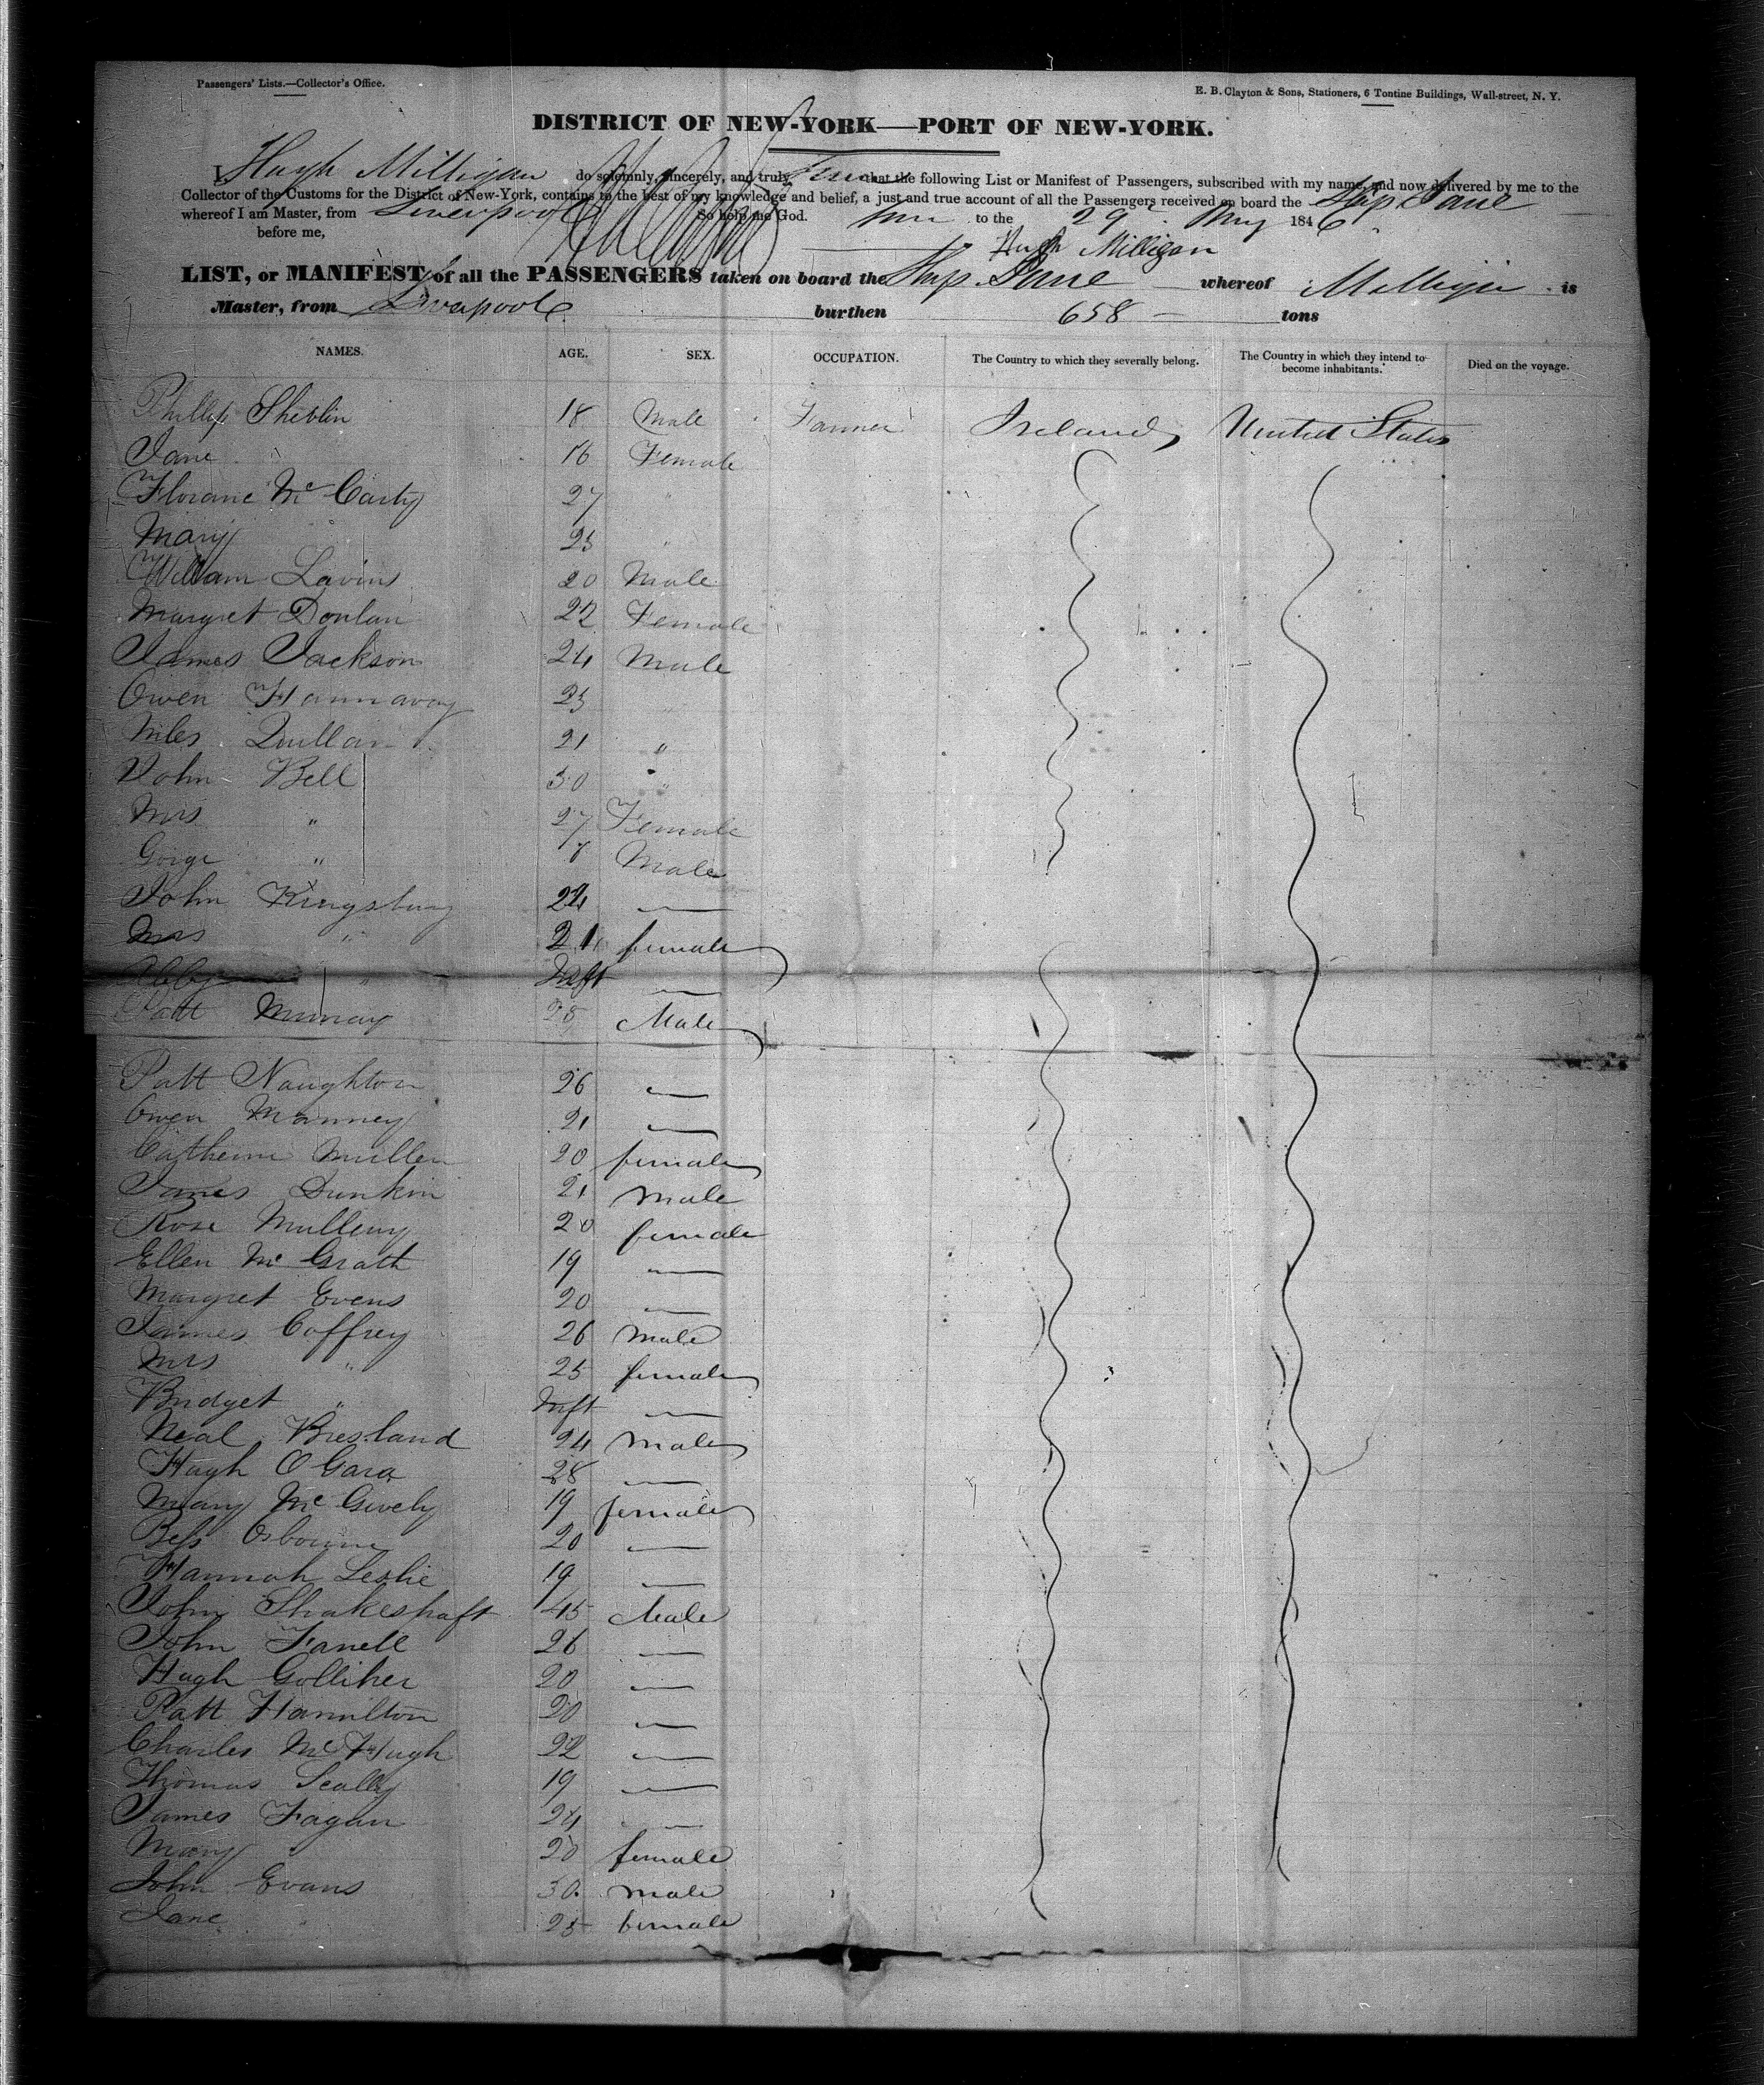 Passengers' Lists.—Collector's Office.
E. B. Clayton & Sons, Stationers, 6 Tontine Buildings, Wall-street, N. Y.
DISTRICT OF NEW-YORK—PORT OF NEW-YORK.
I, Hugh Milligan do solemnly, sincerely, and truly swear that the following List or Manifest of Passengers, subscribed with my name, and now delivered by me to the
Collector of the Customs for the District of New-York, contains to the best of my knowledge and belief, a just and true account of all the Passengers received on board the Ship Jane
whereof I am Master, from Liverpool So help me God. to the 29 May 1846
before me, Hugh Milligan
LIST, or MANIFEST of all the PASSENGERS taken on board the Ship Jane whereof Milligan is
Master, from Liverpool burthen 658 tons
NAMES. AGE. SEX. OCCUPATION. The Country to which they severally belong. The Country in which they intend to become inhabitants. Died on the voyage.
Phillip Sheblin 18 Male Farmer Ireland United States
Jane 16 Female
Florane Mc Carty 27 "
Mary 25 "
William Lavins 20 Male
Margret Donlan 22 Female
James Jackson 24 Male
Owen Hannavay 25
Miles Quillan 21 "
John Bell 30 "
Mrs " 27 Female
Gorge " 7 Male
John Kingsbury 24 —
Mrs " 21 female
Abby " Inft —
Patt Murray 25 Male
Patt Naughton 26 —
Owen Manney 21 —
Catherine Mullen 20 female
James Dunkin 21 male
Rose Mulleny 20 female
Ellen Mc Grath 19 —
Margret Evens 20 —
James Coffrey 26 male
Mrs " 25 female
Bridget " Inft —
Neal Bresland 24 male
Hugh O Gara 28 —
Mary Mc Gively 19 female
Bess Osbourne 20 —
Hannah Leslie 19 —
John Shakeshaft 45 Male
John Farrell 26 —
Hugh Golliher 20 —
Patt Hamilton 20 —
Charles Mc Hugh 22 —
Thomas Scally 19 —
James Fagan 24 —
Mary " 20 female
John Evans 30 male
Jane " 25 female